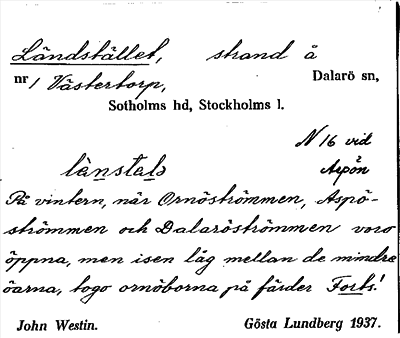 Ländstället, strand å
nr 1 Västertorp, Dalarö sn,
Sotholms hd, Stockholms l.
N 16 vid
länstalə Aspön
På vintern, när Ornöströmmen, Aspö-
strömmen och Dalaröströmmen voro
öppna, men isen låg mellan de mindre
öarna, togo ornöborna på färder
John Westin. Gösta Lundberg 1937.